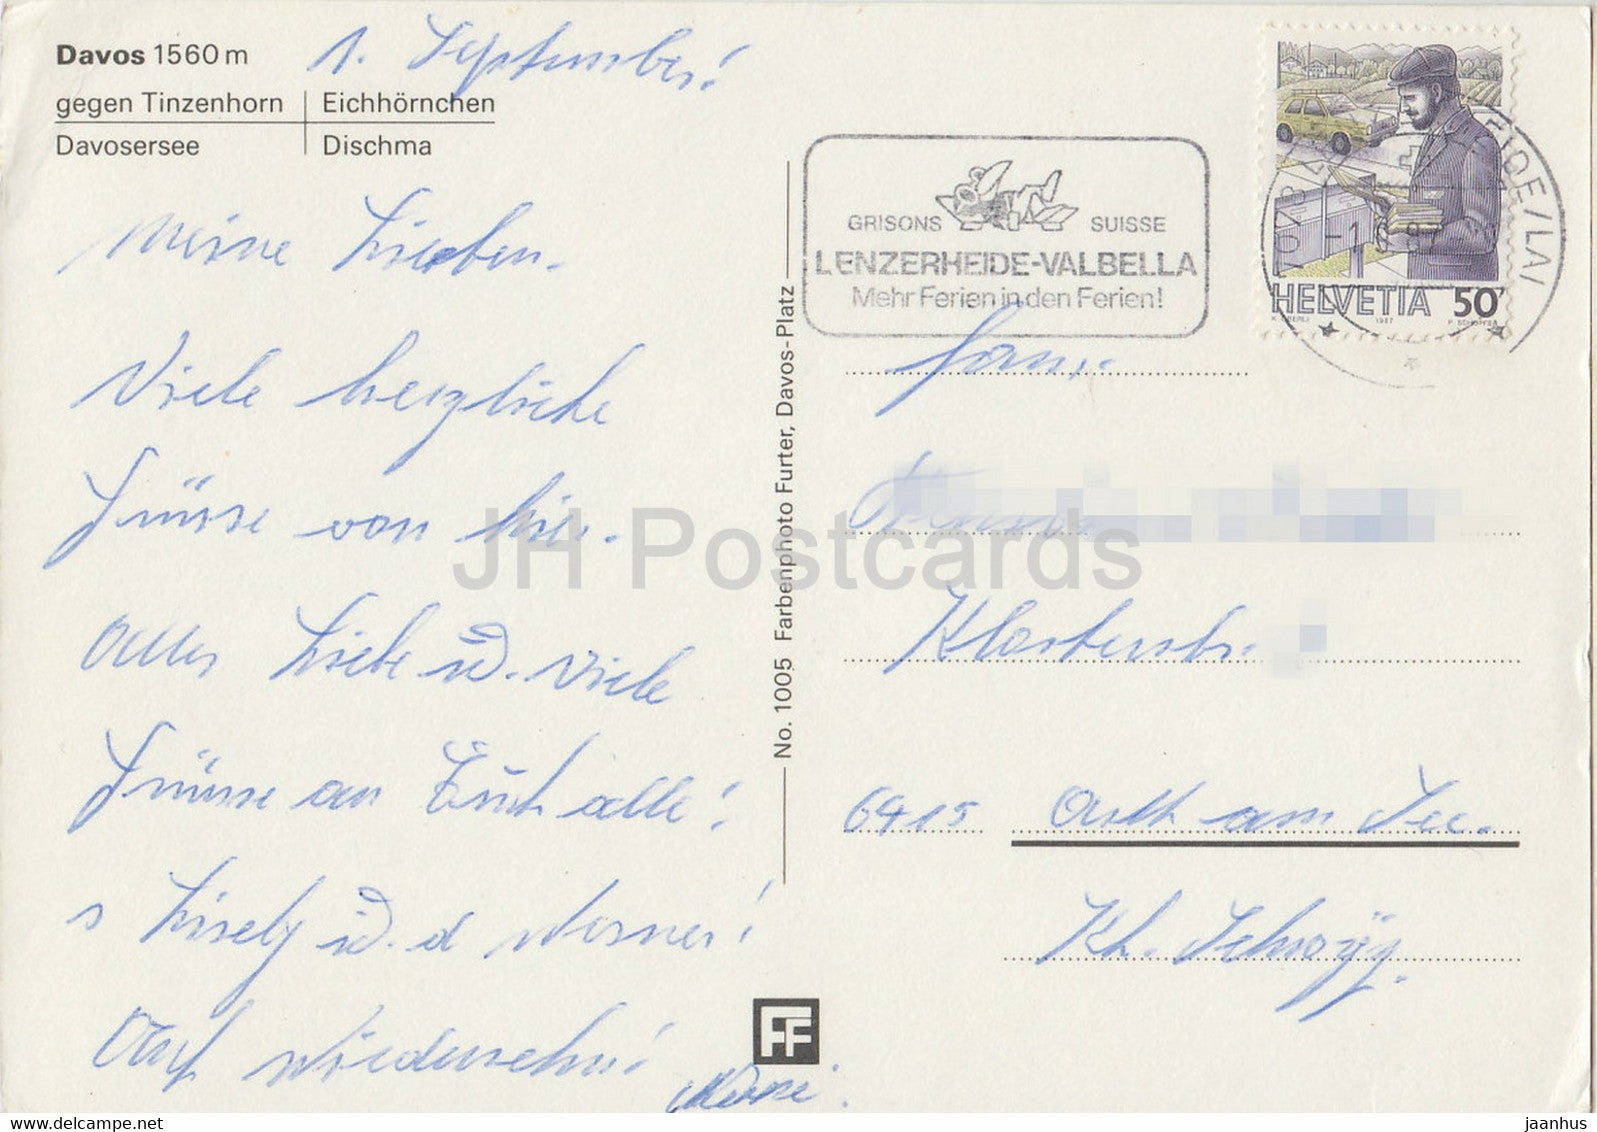 Davos 1560 m
gegen Tinzenhorn | Eichhörnchen
Davosersee | Dischma
1. September!
meine Lieben.
Viele herzliche
Grüsse von hier.
Alles Liebe u. viele
Grüsse an Euch alle!
s Lisely u. d Werner!
Auf wiedersehn!
No. 1005 Farbenphoto Furter, Davos-Platz
FF
GRISONS SUISSE
LENZERHEIDE-VALBELLA
Mehr Ferien in den Ferien!
HELVETIA 50
1987
Fam.
Klosterstr.
6415 Arth am See.
Kt. Schwyz.
JH Postcards
www.delcampe.net
jaanhus